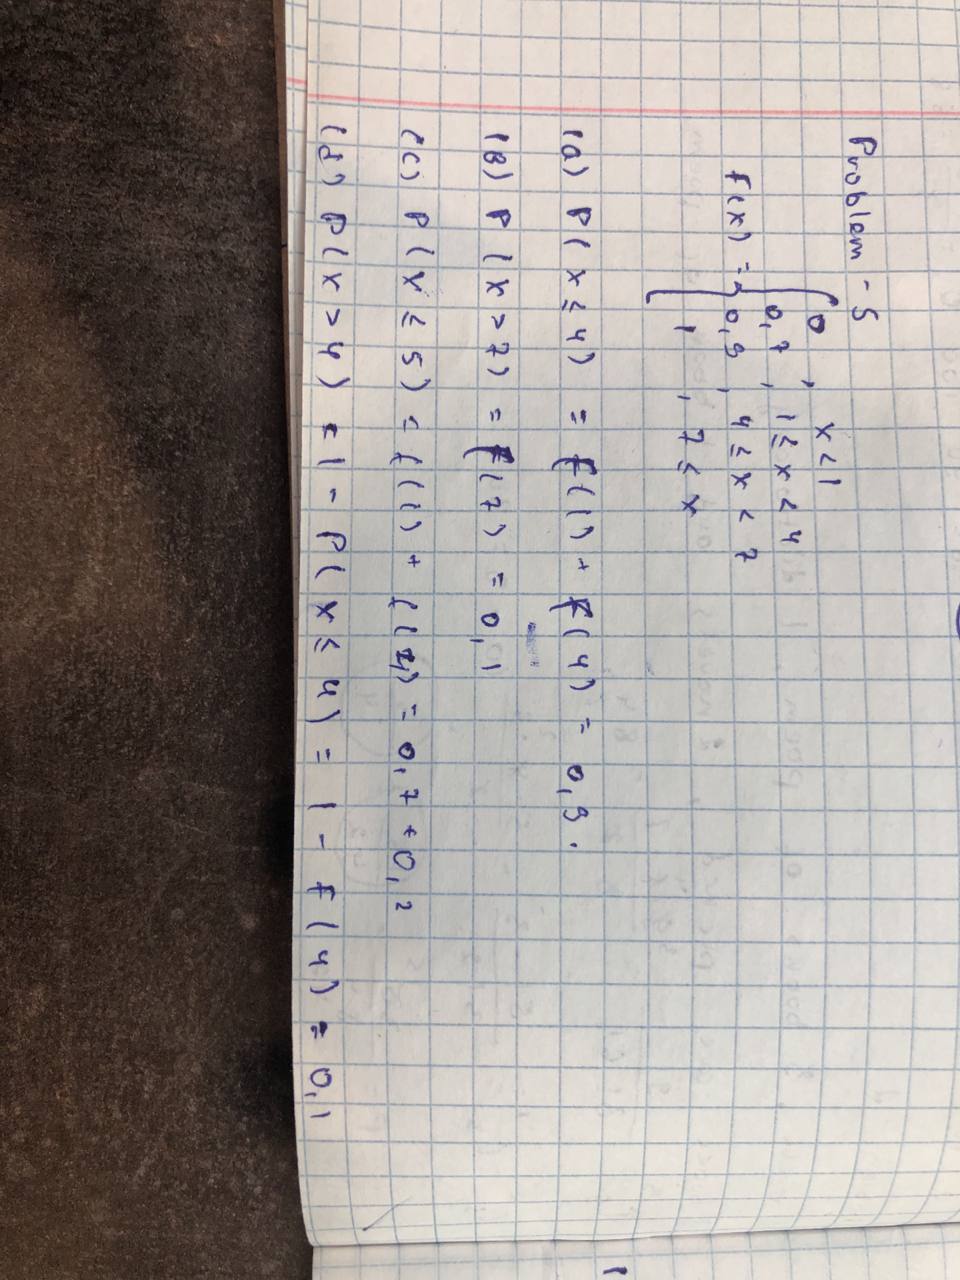 Problem - 5
0 , x < 1
0,7 , 1 ≤ x < 4
F(x) = 0,9 , 4 ≤ x < 7
1 , 7 ≤ x
(a) P(x ≤ 4) = F(1) + F(4) = 0,9.
(B) P(x > 7) = F(7) = 0,1
(c) P(x ≤ 5) = f(1) + f(4) = 0,7 + 0,2
(d) P(x > 4) = 1 - P(x ≤ 4) = 1 - F(4) = 0,1